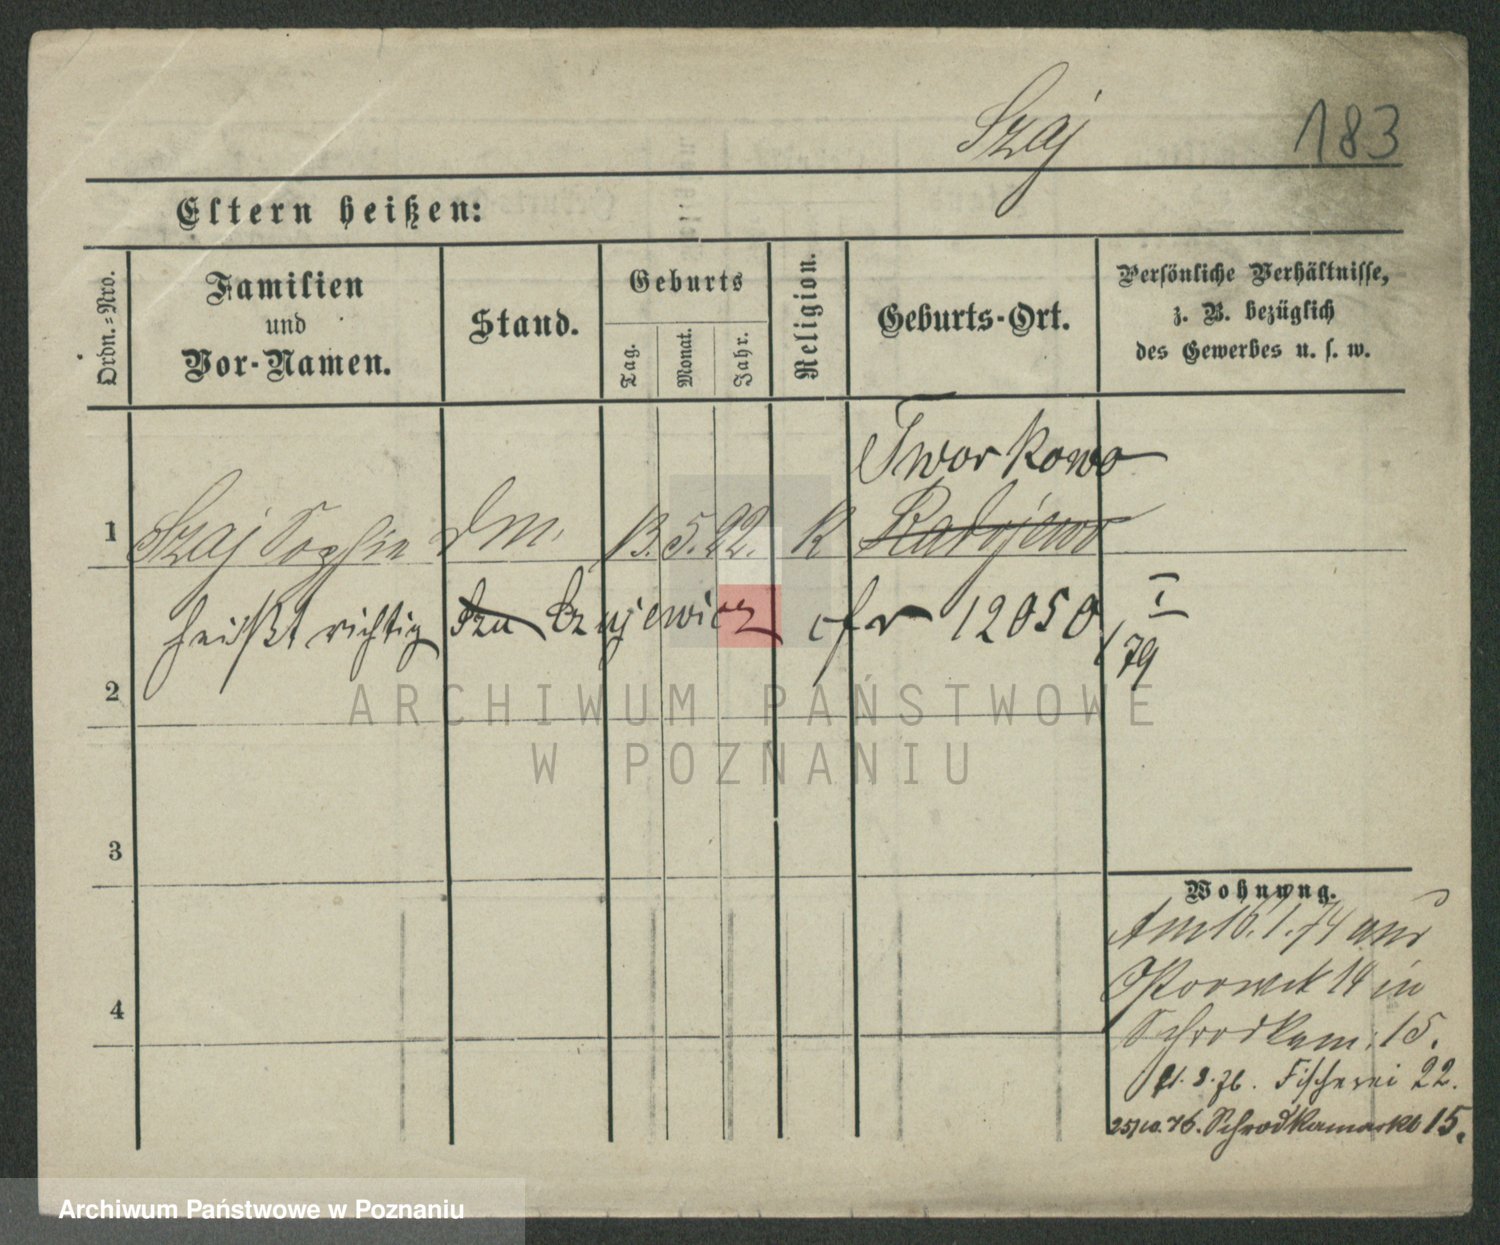 Szaj
183
Eltern heißen:
Ordn.=Nro.
Familien
und
Vor-Namen.
Stand.
Geburts
Tag.
Monat.
Jahr.
Religion.
Geburts-Ort.
Persönliche Verhältnisse,
z. B. bezüglich
des Gewerbes u. s. w.
Tworkowo
1 Szaj Sophie dM. 13. 5. 22. K Radojewo
heißt richtig Sza Szajewicz cfr 12050 I
/79
2
ARCHIWUM PAŃSTWOWE
W POZNANIU
3
Wohnung.
Am 16.1.74 aus
14 in
Schrodkam. 15.
Fischerei 22.
25/10.76. Schrodkamarkt 15.
4
Archiwum Państwowe w Poznaniu